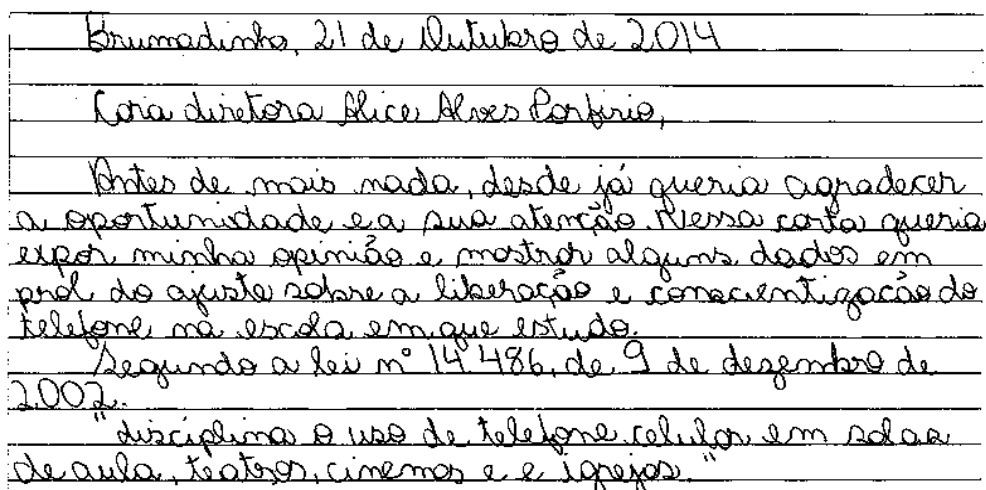 Brumadinho, 21 de Outubro de 2014
Cara diretora Alice Alves Porfirio,
Antes de mais nada, desde já queria agradecer
a oportunidade e a sua atenção. Nessa carta queria
expor minha opinião e mostrar alguns dados em
prol do ajuste sobre a liberação e conscientização do
telefone na escola em que estudo.
Segundo a lei nº 14.486, de 9 de dezembro de
2002.
"disciplina o uso de telefone celular em salas
de aula, teatros, cinemas e e igrejas."